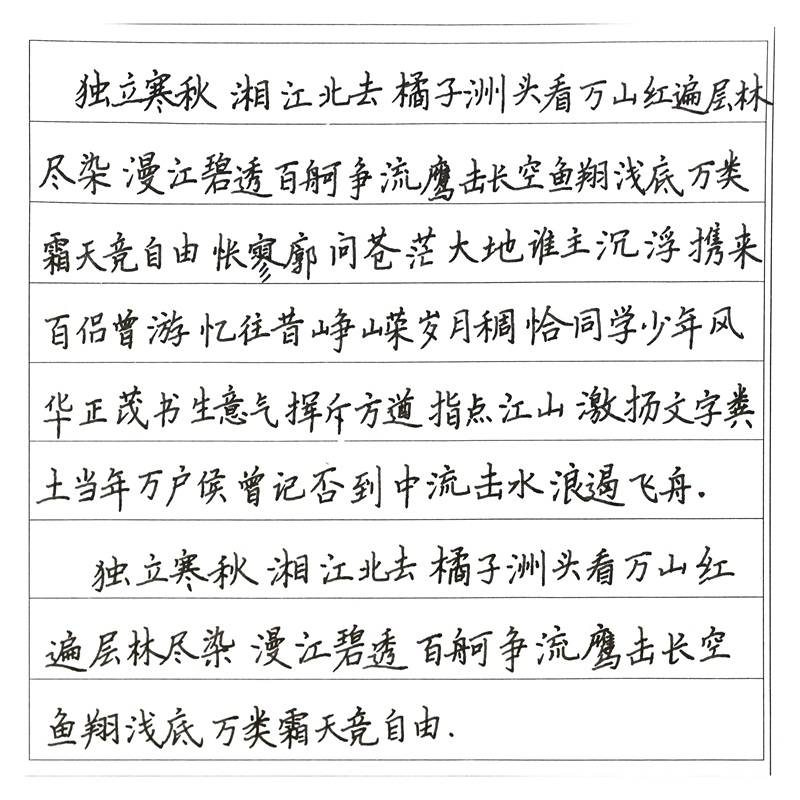 独立寒秋 湘江北去 橘子洲头看万山红遍层林
尽染 漫江碧透百舸争流鹰击长空鱼翔浅底万类
霜天竞自由 怅寥廓 问苍茫大地谁主沉浮 携来
百侣曾游 忆往昔峥嵘岁月稠 恰同学少年风
华正茂书生意气挥斥方遒 指点江山 激扬文字粪
土当年万户侯 曾记否到中流击水 浪遏飞舟.
独立寒秋 湘江北去 橘子洲头看万山红
遍层林尽染 漫江碧透 百舸争流鹰击长空
鱼翔浅底 万类霜天竞自由.